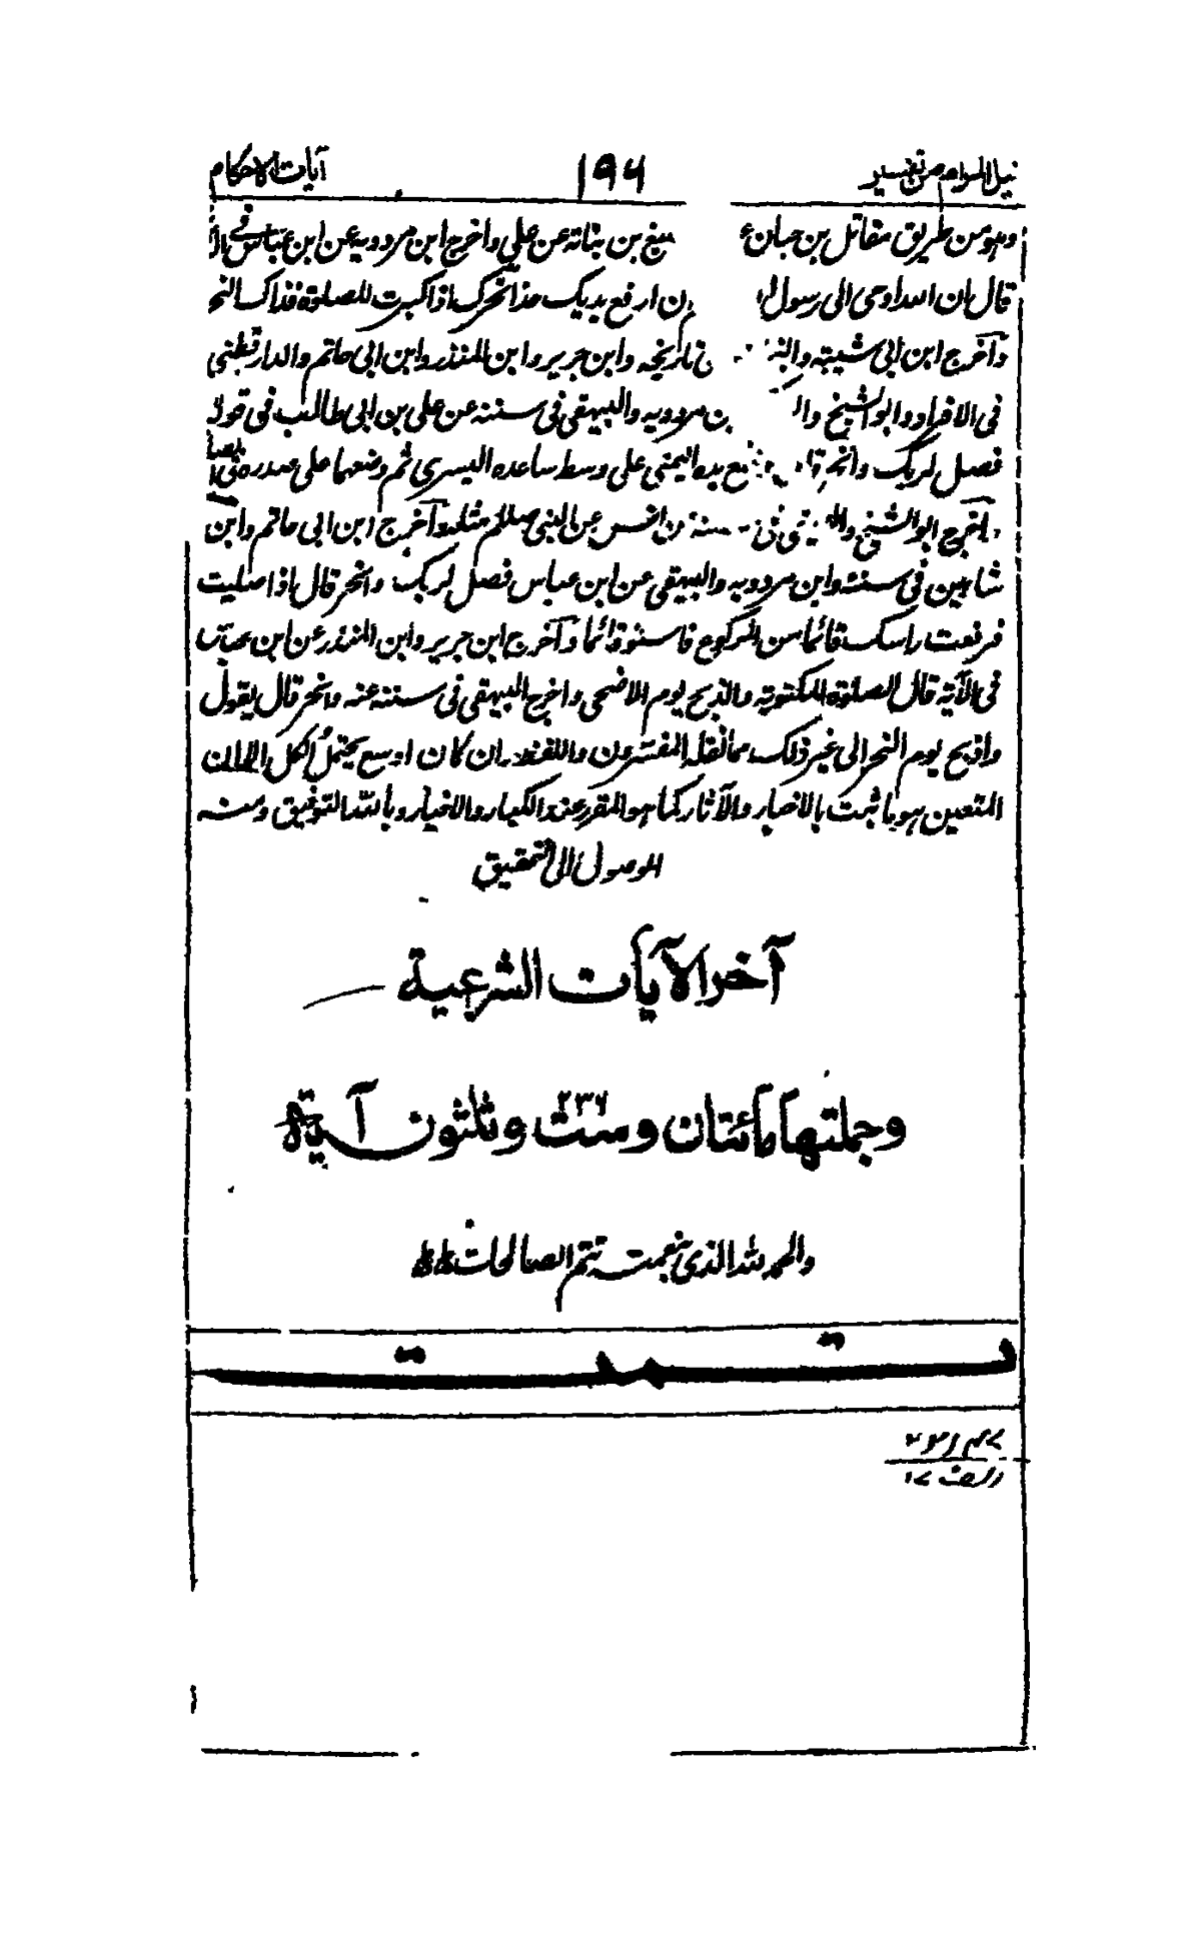 نيل المرام من تفسير ١٩٦ آيات الاحكام
وهو من طريق مقاتل بن حيان بن نباتة عن علي واخرج ابن مردويه عن ابن عباس في
قال ان الله اوحى الى رسوله ان ارفع يديك حذا نحرك اذا كبرت للصلوة فذاك النحر
وآخرج ابن ابي شيبة تاريخه وابن جرير وابن المنذر وابن ابي حاتم والدارقطني
في الافراد وابو الشيخ مردويه والبيهقي في سننه عن علي بن ابي طالب في قوله
فصل لربك وانحر يده اليمنى على وسط ساعده اليسرى ثم وضعهما على صدره في الصلوة
واخرج ابو الشيخ سننه عن انس عن النبي صللم مثله وآخرج ابن ابي حاتم وابن
شاهين في سننه وابن مردويه والبيهقي عن ابن عباس فصل لربك وانحر قال اذا صليت
فرفعت راسك قائما من الركوع فاستو قائما وآخرج ابن جرير وابن المنذر عن ابن عباس
في الآية قال الصلوة المكتوبة والذبح يوم الاضحى واخرج البيهقي في سننه عنه وانحر قال يقول
واذبح يوم النحر الى غير ذلك مما نقله المفسرون واللفظ وان كان اوسع يحتمل الكل الا ان
المتعين هو ما ثبت بالاخبار والآثار كما هو المقرر عند الكبار والاخيار وبالله التوفيق ومنه
الوصول الى التحقيق
آخر الآيات الشرعية
وجملتها مائتان وست وثلثون آية
٢٣٦
والحمد لله الذي بنعمته تتم الصالحات
تمت